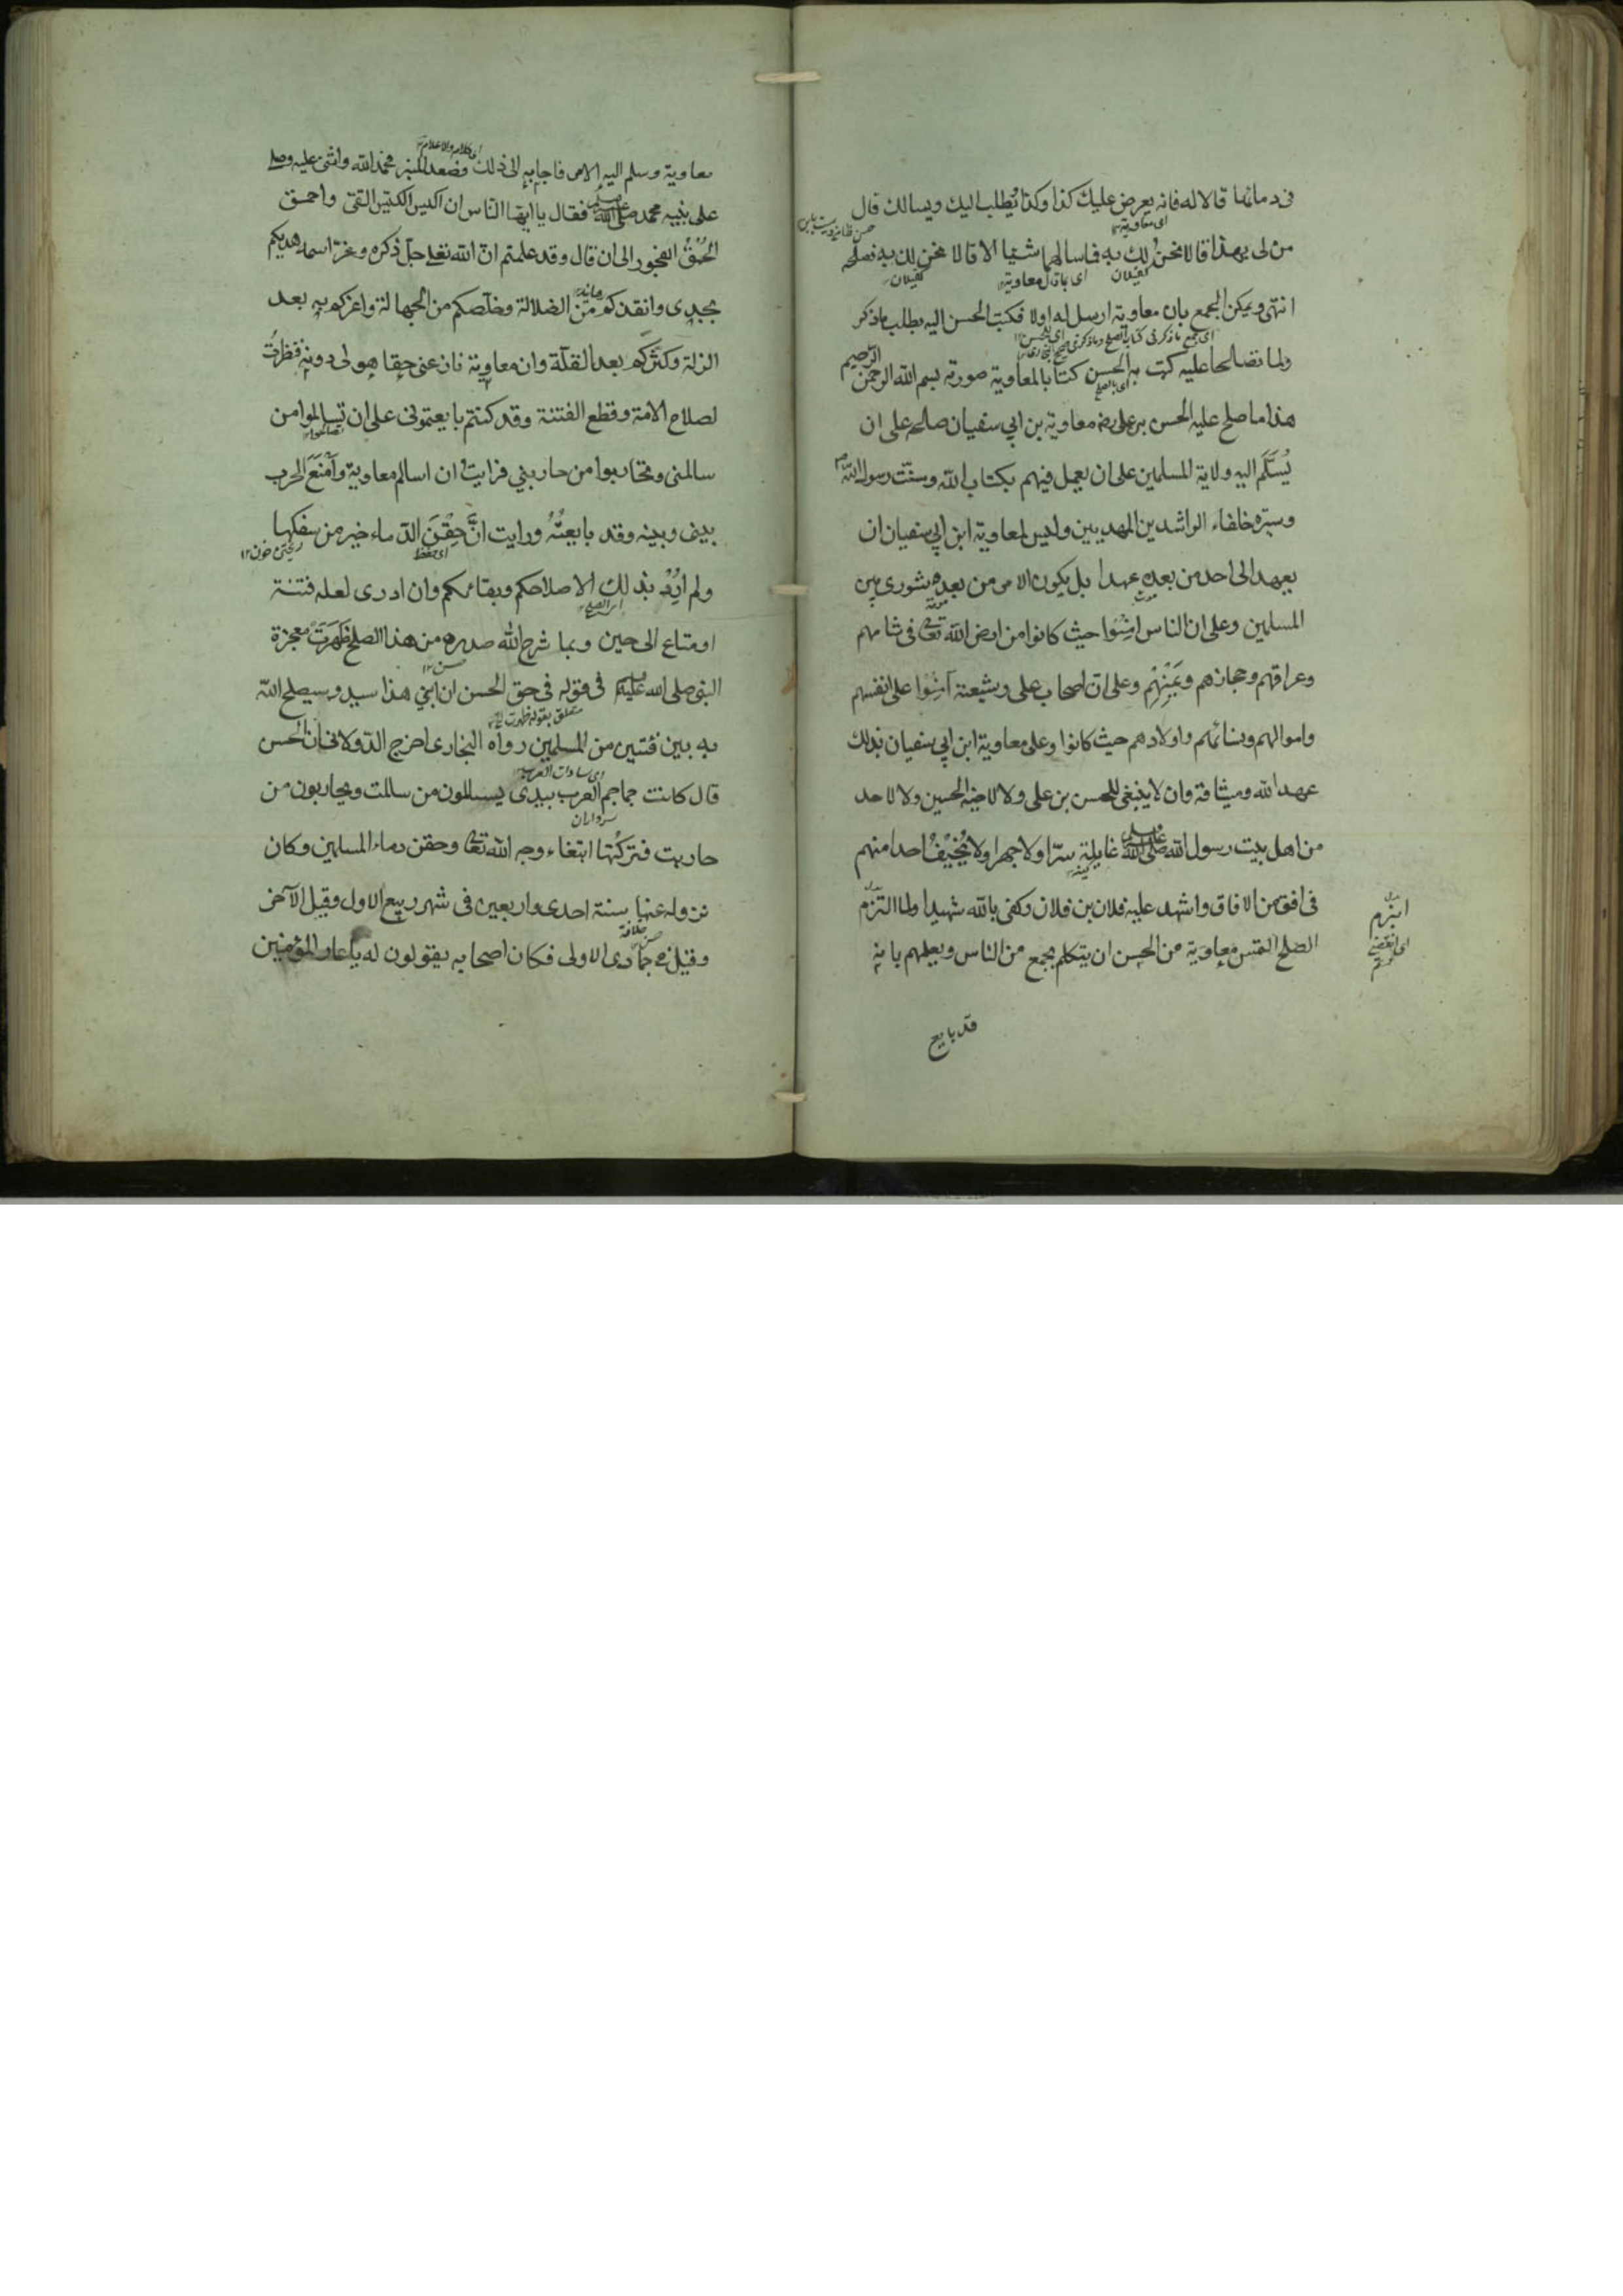 فى دمائها قالا له فانه يعرض عليك كذا وكذا يُطلب اليك ويسالك قال
اى معاوية
من لى بهذا قالا نحنُ لك به فما سالهما شيئا الا قالا نحن لك به فصلحه
كفيلان
اى باقال معاوية
كفيلان
انتهى ويمكن الجمع بان معاوية ارسل له اولا فكتب الحسن اليه يطلب ماذكر
ولما تصالحا عليه كتب به الحسن كتابا لمعاوية صورته بسم الله الرحمن الرحيم
اى بالصلح
هذا ما صلح عليه الحسن بن على رضه معاوية بن ابي سفيان صالحه على ان
يُسَلِّمَ اليه ولاية المسلمين على ان يعمل فيهم بكتاب الله وسنّت رسول الله
وسيرة خلفاء الراشدين المهديين وليس لمعاوية ابن ابي سفيان ان
يعهد الى احد من بعده عهدا بل يكون الامر من بعده شورى بين
المسلمين وعلى ان الناس امِنُوا حيث كانوا من ارض الله تعا فى شامهم
وعراقهم وحجازهم ويَمَنِهِم وعلى ان اصحاب على وشيعته آمِنُوا على انفسهم
واموالهم ونسائهم واولادهم حيث كانوا وعلى معاوية ابن ابي سفيان بذلك
عهد الله وميثاقه وان لا ينبغى للحسن بن على ولا لاخيه الحسين ولا لاحد
من اهل بيت رسول الله صلى الله غايلة سرّا ولا جهرا ولا يُخِيْفُ احدا منهم
فى افق من الافاق واشهد عليه فلان بن فلان وكفى بالله شهيدا ولما التزم
ابنرم
الصلح التمس معاوية من الحسن ان يتكلم بجمع من الناس ويعلمهم بانه
قد بايع
معاوية وسلم اليه الامر فاجابه الى ذلك فصعد المنبر فحمد الله واثنى عليه وصلى
على نبيه محمد صلى الله فقال يا ايها الناس ان اكيس الكيّس التقى واحمق
الحُمْقُ الفجور الى ان قال وقد علمتم ان الله تعلى جلّ ذكره وعزّ اسمه هديكم
بجدى وانقذكم من الضلالة وخلّصكم من الجهالة واعزكم به بعد
الزلة وكثركم بعد القلّة وان معاوية نازعنى حقا هو لى دونه فنظرتُ
لصلاح الامة وقطع الفتنة وقد كنتم بايعتمونى على ان تسالموا من
سالمنى وتحاربوا من حاربنى فرايتُ ان اسالم معاوية وآمْنَعَ الحرب
بينى وبينه وقد بايعتُهُ ورايت انَّ حِقْنَ الدّماء خير من سفكها
اى حفظ
ريختن خون ١٢
ولم اُرِدْ بذلك الا صلاحكم وبقائكم وان ادرى لعله فتنة
اى الصلح
او متاع الى حين وبما شرح الله صدره من هذا الصلح ظَهَرَت معجزة
حسن ١٢
النبى صلى الله عليه فى قوله فى حق الحسن ان ابني هذا سيد وسيصلح الله
متعلق بقوله ظهرت
به بين فئتين من المسلمين رواه البخارى اخرج الدولابى ان الحسن
اى سادات العرب
قال كانت جماجم العرب بيدى يسالمون من سالمت ويحاربون من
سرداران
حاربت فتركتُها ابتغاء وجه الله تعا وحقن دماء المسلمين وكان
نزوله عنها سنة احدى واربعين فى شهر ربيع الاول وقيل الآخر
خلافة
وقيل فى جمادى الاولى فكان اصحابه يقولون له يا عار المؤمنين